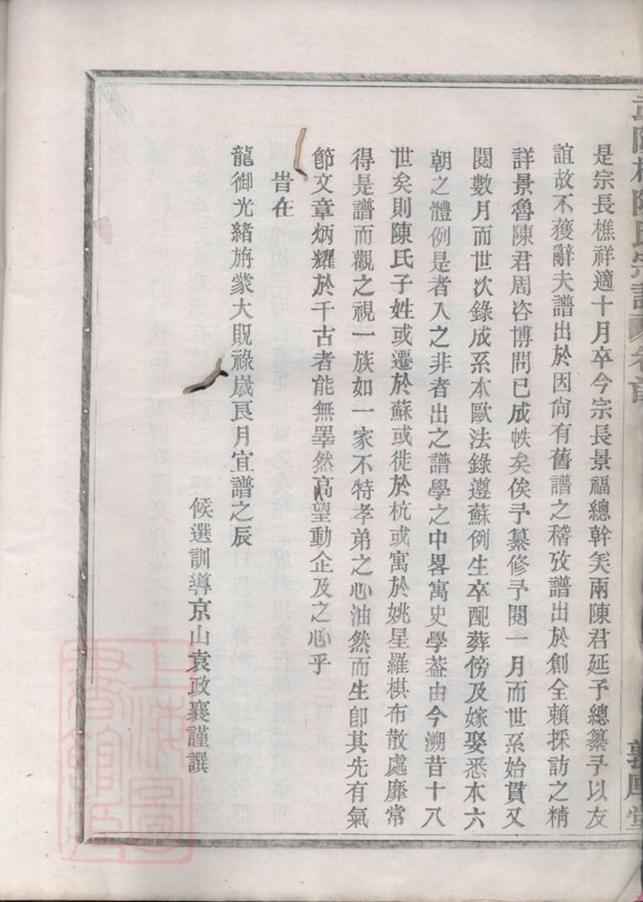 是宗長樵祥適十月卒今宗長景福總幹美兩陳君延予總纂予以友
誼故不獲辭夫譜出於因尙有舊譜之稽攷譜出於創全賴採訪之精
詳景魯陳君周咨博問已成帙矣俟予纂修予閱一月而世系始貫又
閱數月而世次錄成系本歐法錄遵蘇例生卒配葬傍及嫁娶悉本六
朝之體例是者入之非者出之譜學之中畧寓史學葢由今溯昔十八
世矣則陳氏子姓或遷於蘇或徙於杭或寓於姚星羅棋布散處靡常
得是譜而觀之視一族如一家不特孝弟之心油然而生卽其先有氣
節文章炳耀於千古者能無睪然高望動企及之心乎
昔在
龍御光緒旃蒙大貺祿嵗良月宜譜之辰
候選訓導京山袁政襄謹譔
上海圖書館藏